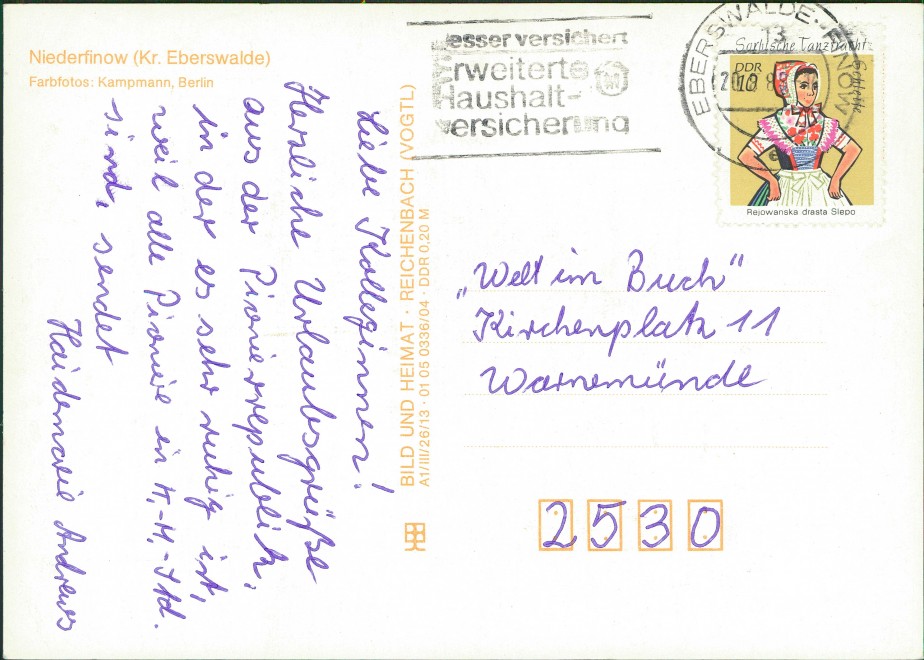 Niederfinow (Kr. Eberswalde)
Farbfotos: Kampmann, Berlin
Liebe Kolleginnen!
Herzliche Urlaubsgrüße
aus der Pionierrepublik,
in der es sehr ruhig ist,
weil alle Pioniere in K.-M.-Std.
sind, sendet
Haidemarie Andrews
BILD UND HEIMAT · REICHENBACH (VOGTL)
A1/III/26/13 · 01 05 0336/04 · DDR 0,20 M
esser versichert
rweiterte
Haushalt-
versicherung
EBERSWALDE-FINOW
13
Sorbische Tanztracht
DDR
10
Rejowanska drasta Slepo
„Welt im Buch“
Kirchenplatz 11
Warnemünde
2530